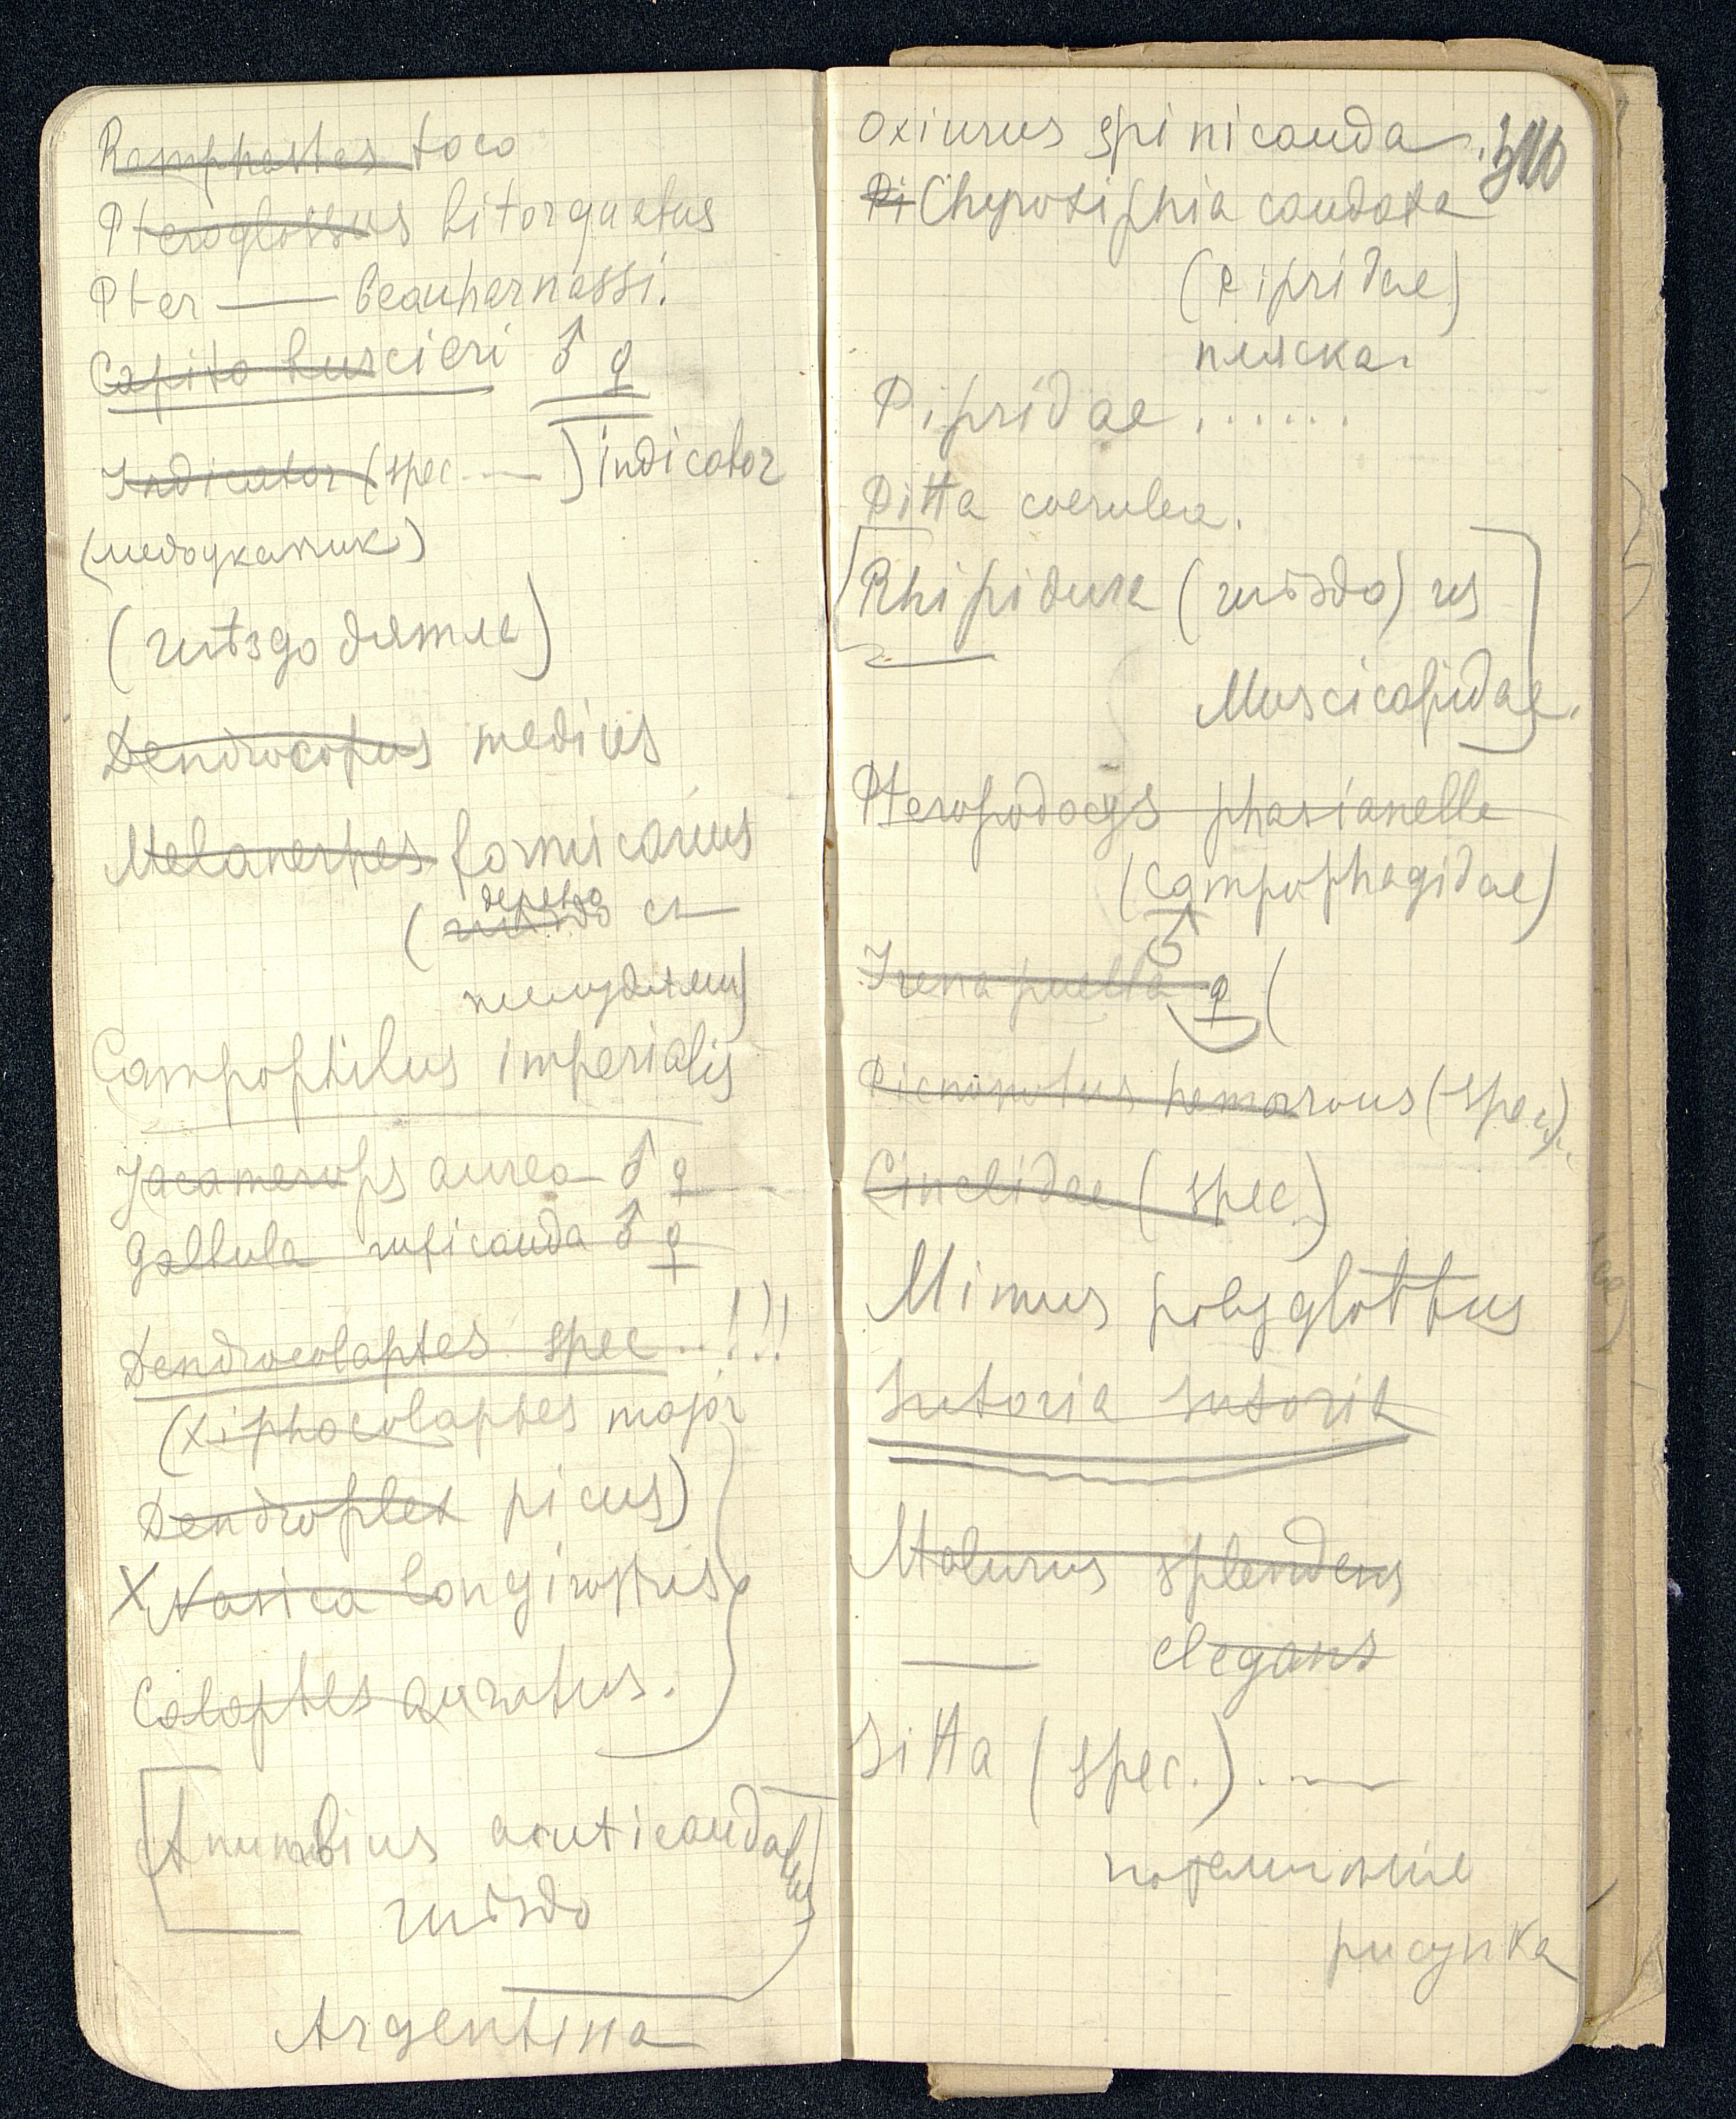 Ramphastos toco
Pteroglossus bitorquatus
Pter —— beauharnassi.
Capito buscieri ♂ ♀
Indicator (spec. —) indicator
(медоукащик)
(гнѣздо дятла)
Dendrocopus medius
Melanerpes formicarius
дерево
(гнѣздо съ
желудями)
Campophilus imperialis
Jacamerops aurea ♂ ♀
Galbula ruficauda ♂ ♀
Dendrocolaptes spec...!!!
(Xiphocolaptes major
Dendroplex picus)
X Nasica longirostris
Colaptes auratus.
[Anumbius acuticaudatus]
гнѣздо
Argentina
Oxiurus spinicauda.
Pi Chyrotiphia caudata
(Pipridae)
пляска.
Pipridae......
Pitta coerulea.
[Rhipidura (гнѣздо) из
Muscicapidae.]
Pteropodocys phasianella
(Campophagidae)
♂
Irena puella ♀ (
Picnonotus hemorrous (spec.).
Cinclidae (spec.)
Mimus polyglottus
Sutoria sutoria
Malurus splendens
—— elegans
Sitta (spec.). —
рисунка